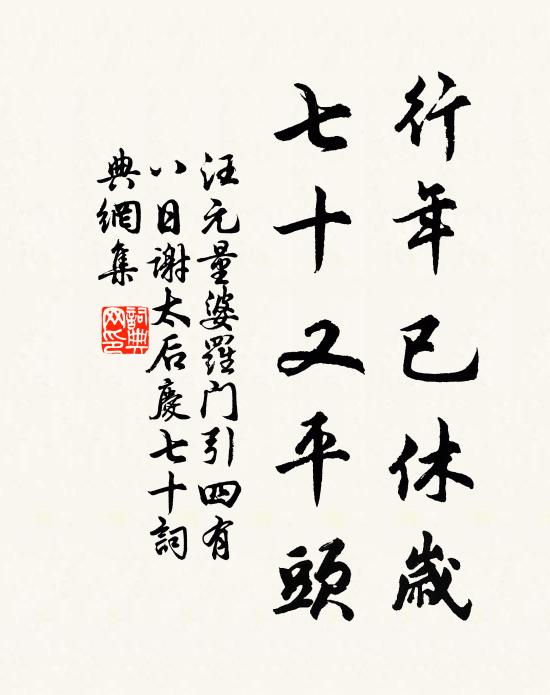 行年已休歲
七十又平頭
汪元量婆羅门引四有
八日謝太后慶七十詞
典網集
詞典网印